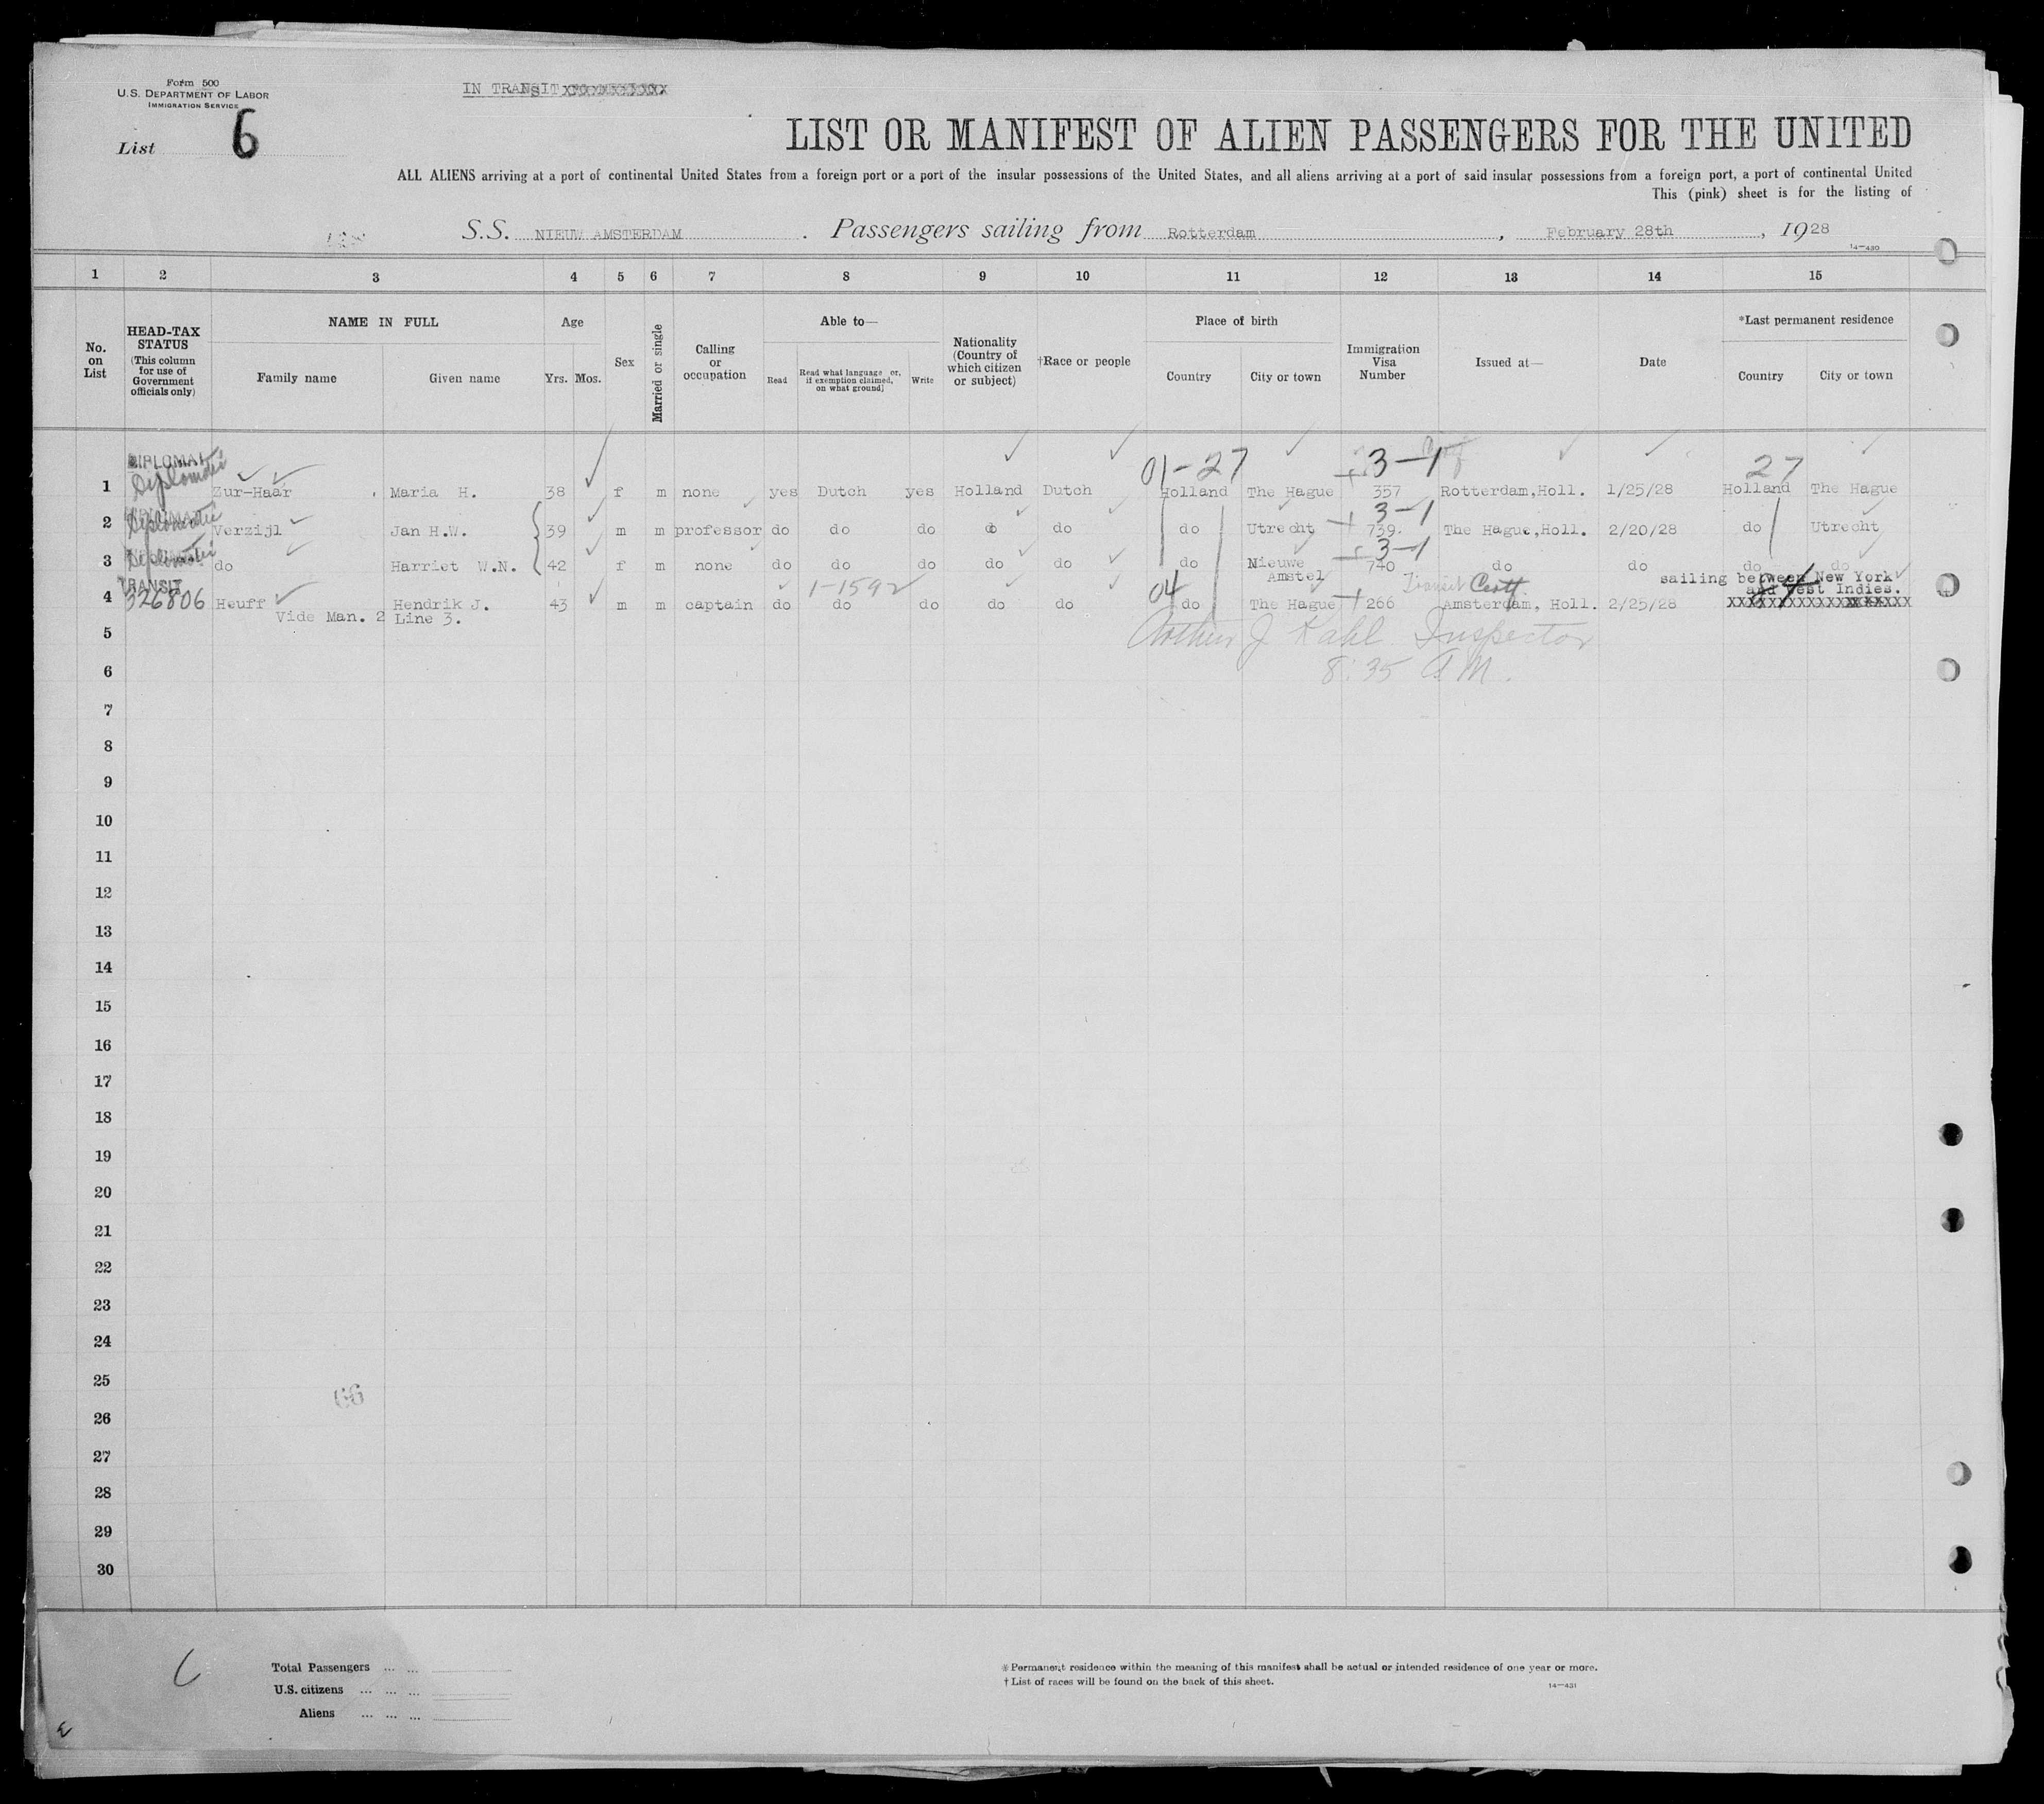 Form 500
U.S. DEPARTMENT OF LABOR
IMMIGRATION SERVICE
IN TRANSIT
List 6
LIST OR MANIFEST OF ALIEN PASSENGERS FOR THE UNITED
ALL ALIENS arriving at a port of continental United States from a foreign port or a port of the insular possessions of the United States, and all aliens arriving at a port of said insular possessions from a foreign port, a port of continental United
This (pink) sheet is for the listing of
S.S. NIEUW AMSTERDAM. Passengers sailing from Rotterdam, February 28th, 1928
14—430
1 2 3 4 5 6 7 8 9 10 11 12 13 14 15
No. on List
HEAD-TAX STATUS (This column for use of Government officials only)
NAME IN FULL
Family name Given name
Age
Yrs. Mos.
Sex
Married or single
Calling or occupation
Able to—
Read Read what language or, if exemption claimed, on what ground] Write
Nationality (Country of which citizen or subject)
†Race or people
Place of birth
Country City or town
Immigration Visa Number
Issued at—
Date
*Last permanent residence
Country City or town
DIPLOMAT
01-27 3-1 27
1 Diplomatic Zur-Haar, Maria H. 38 f m none yes Dutch yes Holland Dutch Holland The Hague 357 Rotterdam,Holl. 1/25/28 Holland The Hague
3-1
2 Diplomatic Verzijl Jan H.W. 39 m m professor do do do do do do Utrecht 739. The Hague,Holl. 2/20/28 do Utrecht
3-1
3 Diplomatic do Harriet W.N. 42 f m none do do do do do do Nieuwe Amstel 740 do do do do
TRANSIT 1-1592 04 Transit Certf. sailing between New York and West Indies.
4 326806 Heuff Hendrik J. 43 m m captain do do do do do do The Hague 266 Amsterdam, Holl. 2/25/28 XXXXXXXXXXXXXXXXXX
Vide Man. 2 Line 3.
5 Arthur J Kahl Inspector
6 8:35 A M.
7
8
9
10
11
12
13
14
15
16
17
18
19
20
21
22
23
24
25
66
26
27
28
29
30
Total Passengers ... ...
U.S. citizens ... ... ...
Aliens ... ... ...
* Permanent residence within the meaning of this manifest shall be actual or intended residence of one year or more.
† List of races will be found on the back of this sheet.
14—431